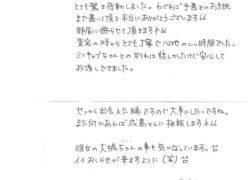 とても驚き感動しました。わざわざ手書きのお手紙
まで書いて頂き本当にありがとうございます
部屋に飾らせて頂きます
査定の時からとても丁寧で心地のいい時間でした。
ミニキャブちゃんとの別れは惜しかったけど安心して
お渡しできました。
せっかく出会えた縁ですので大事にしたいですね。
また何かあれば成島さんに相談します
彼女の大橋ちゃんの事も気になっています。笑
イイおしらせが来ますように(笑)笑